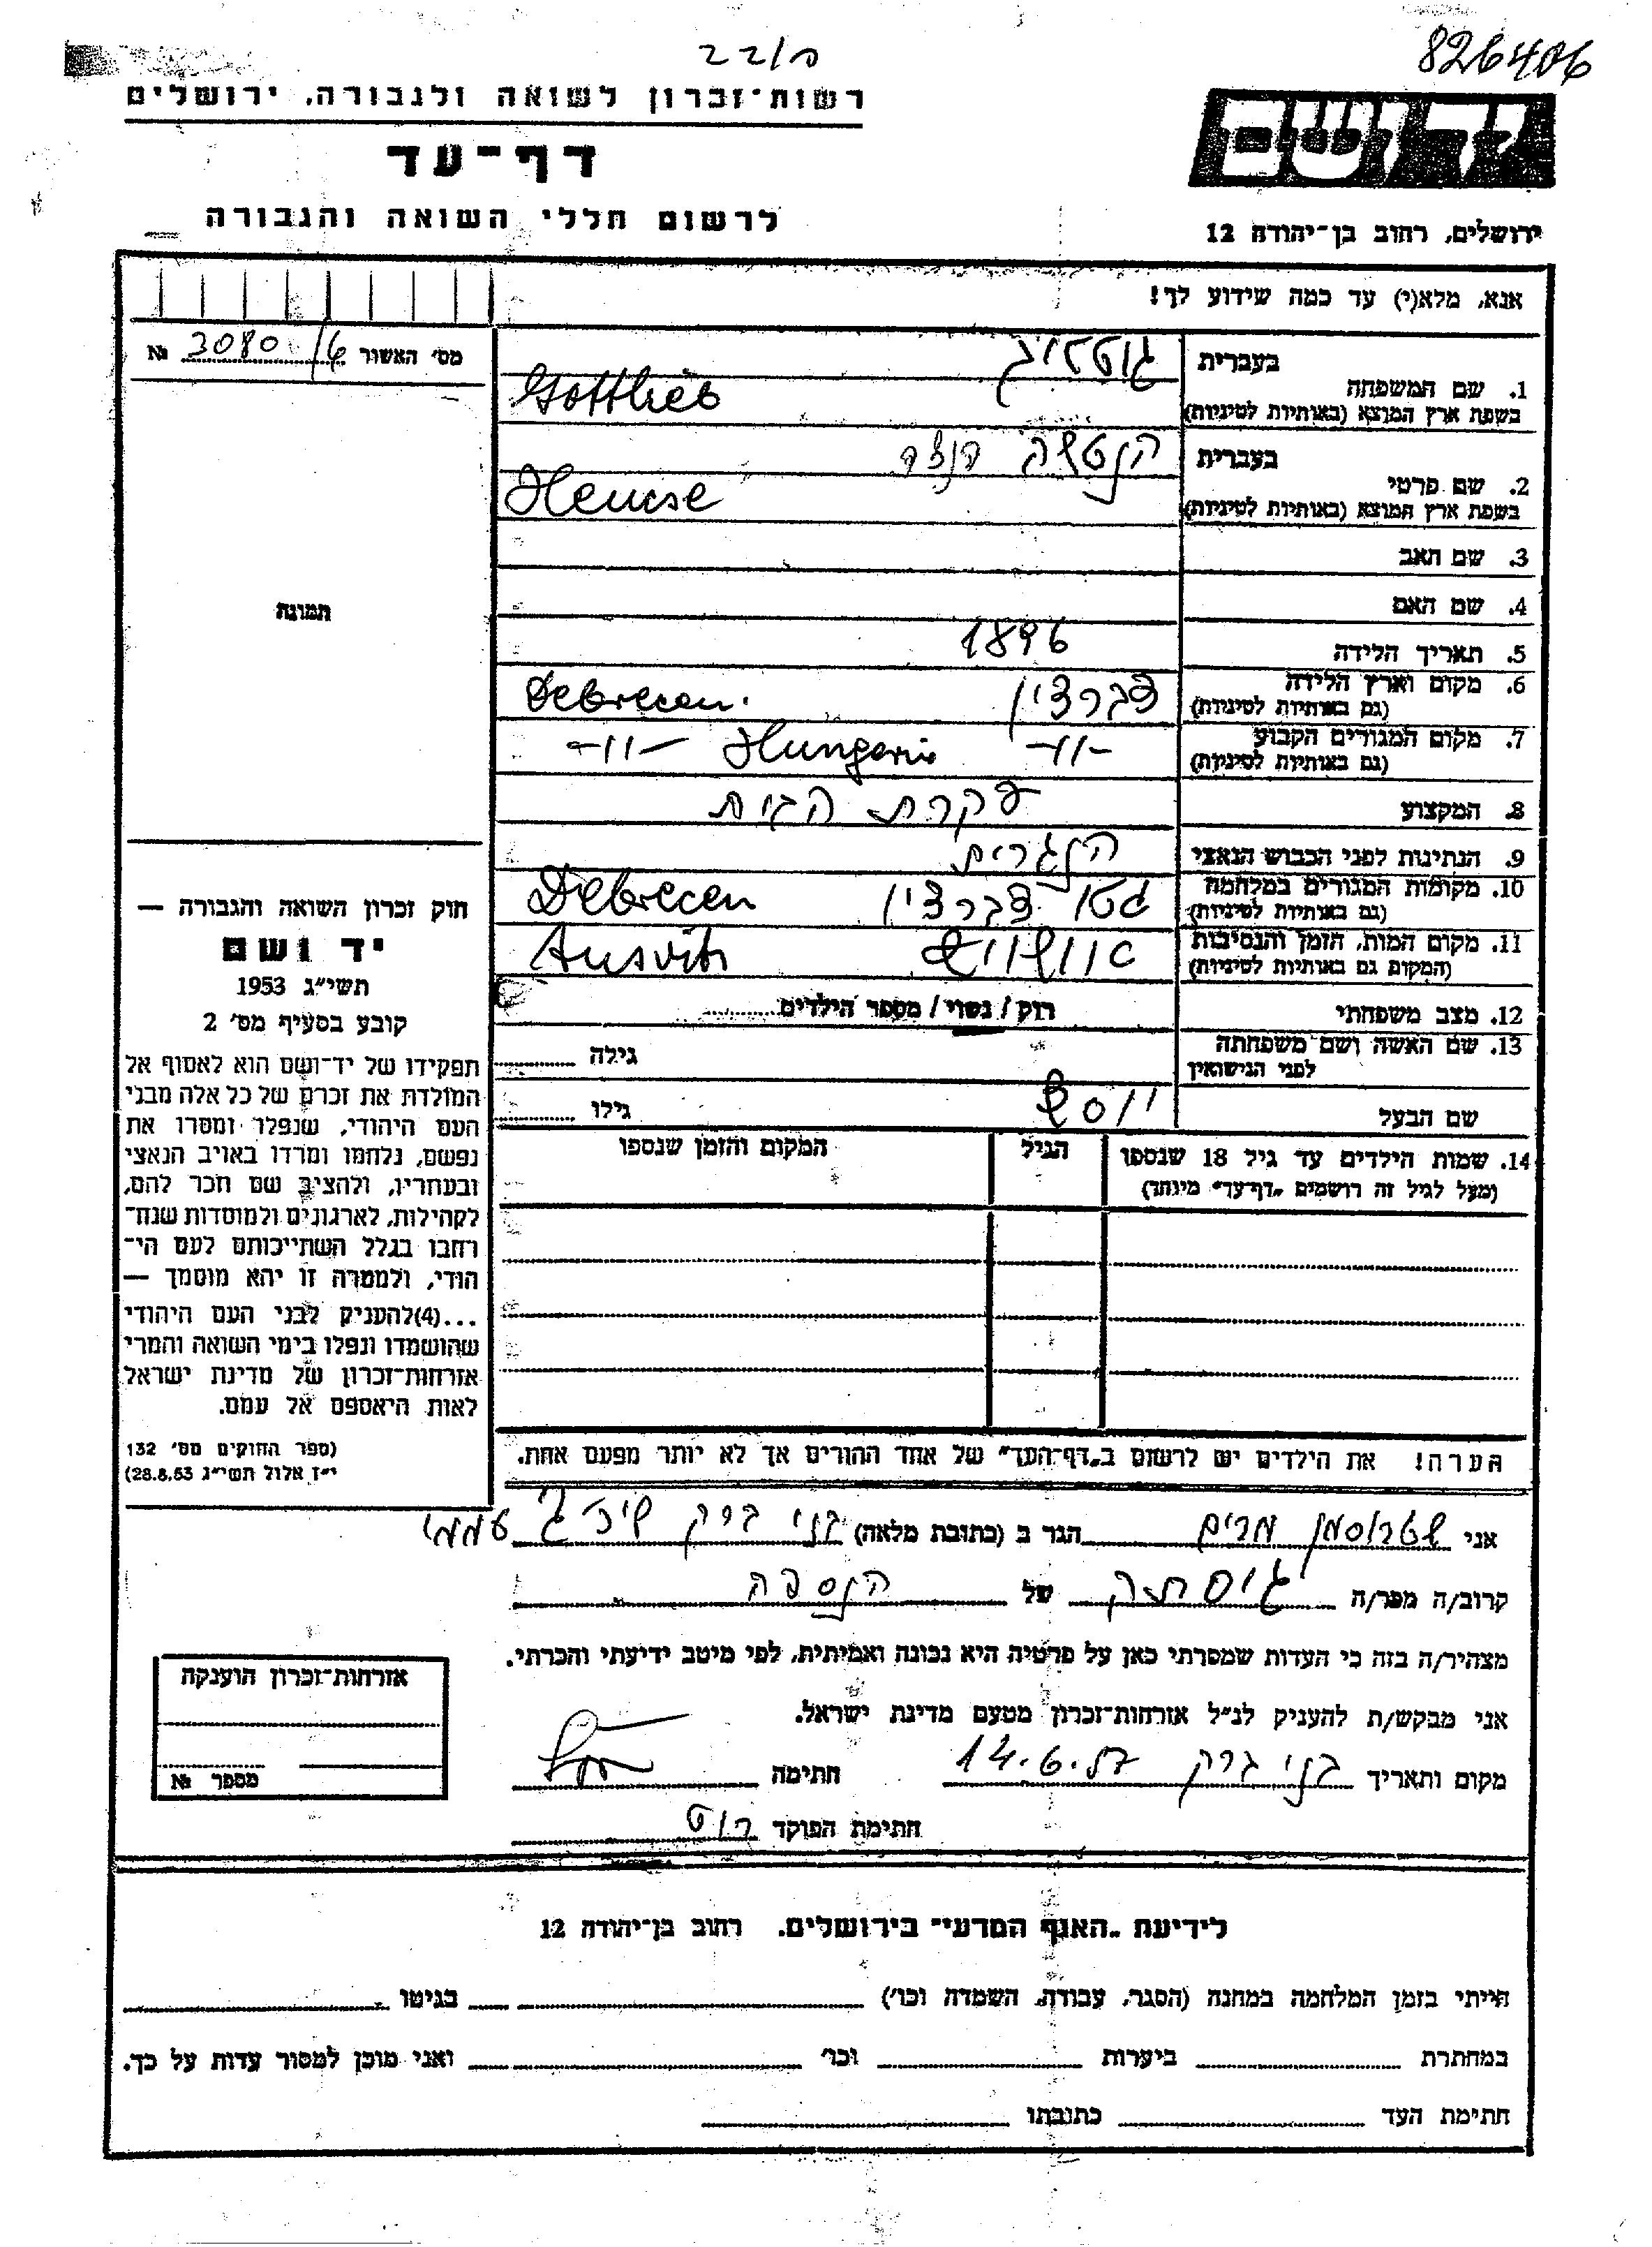 22/ם
826406
רשות־זכרון לשואה ולגבורה, ירושלים
דף־עד
לרשום חללי השואה והגבורה
יד ושם
ירושלים, רחוב בן־יהודה 12
אנא, מלא(י) עד כמה שידוע לך!
מס' האשור 3080/6 №
1. שם המשפחה
בעברית גוטליב
בשפת ארץ המוצא (באותיות לטיניות) Gottlieb
2. שם פרטי
בעברית הנטשה
בשפת ארץ המוצא (באותיות לטיניות) Hencse
3. שם האב
4. שם האם
5. תאריך הלידה 1896
6. מקום וארץ הלידה
(גם באותיות לטיניות) דברצין Debrecen.
7. מקום המגורים הקבוע
(גם באותיות לטיניות) -//- Hungaria -//-
8. המקצוע עקרת הבית
9. הנתינות לפני הכבוש הנאצי הנגרית
10. מקומות המגורים במלחמה
(גם באותיות לטיניות) גטו דברצין Debrecen
11. מקום המות, הזמן והנסיבות
(המקום גם באותיות לטיניות) אושויץ Ausvitz
12. מצב משפחתי רוק / נשוי / מספר הילדים
13. שם האשה ושם משפחתה
לפני הנישואין גילה
שם הבעל יוסף גילו
14. שמות הילדים עד גיל 18 שנספו
(מעל לגיל זה רושמים „דף־עד" מיוחד)
הגיל
המקום והזמן שנספו
הערה! את הילדים יש לרשום ב„דף־העד" של אחד ההורים אך לא יותר מפעם אחת.
תמונה
חוק זכרון השואה והגבורה —
יד ושם
תשי"ג 1953
קובע בסעיף מס' 2
תפקידו של יד־ושם הוא לאסוף אל
המולדת את זכרם של כל אלה מבני
העם היהודי, שנפלו ומסרו את
נפשם, נלחמו ומרדו באויב הנאצי
ובעוזריו, ולהציב שם וזכר להם,
לקהילות, לארגונים ולמוסדות שנח־
רחבו בגלל השתייכותם לעם הי־
הודי, ולמטרה זו יהא מוסמך —
...(4)להעניק לבני העם היהודי
שהושמדו ונפלו בימי השואה והמרי
אזרחות־זכרון של מדינת ישראל
לאות היאספם אל עמם.
(ספר החוקים מס' 132
י"ז אלול תשי"ג 28.8.53)
אני שטרוסמן מרים הגר ב (כתובת מלאה) בני ברק שיכ' ג'
קרוב/ה מכר/ה גיסתה של הנספה
מצהיר/ה בזה כי העדות שמסרתי כאן על פרטיה היא נכונה ואמיתית, לפי מיטב ידיעתי והכרתי.
אני מבקש/ת להעניק לנ"ל אזרחות־זכרון מטעם מדינת ישראל.
מקום ותאריך בני ברק 14.6.57 חתימה
חתימת הפוקד רוט
אזרחות־זכרון הוענקה
מספר №
לידיעת „האגף המדעי" בירושלים, רחוב בן־יהודה 12
הייתי בזמן המלחמה במחנה (הסגר, עבודה, השמדה וכו') בגיטו
במחתרת ביערות וכו' ואני מוכן למסור עדות על כך.
חתימת העד כתובתו